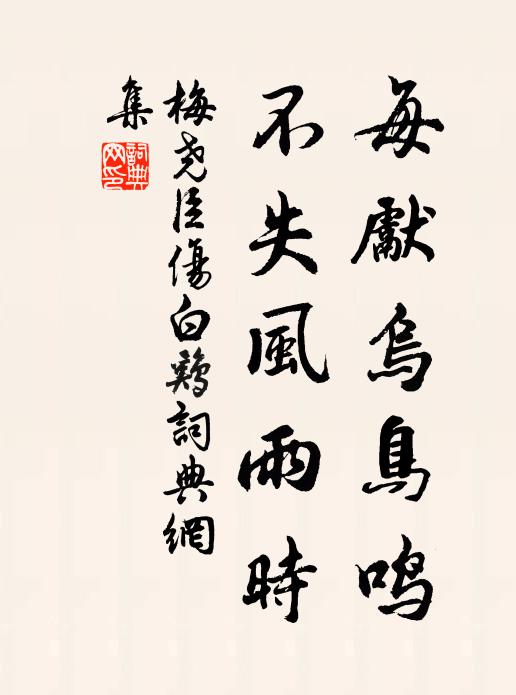 每獻烏鳥鳴
不失風雨時
梅堯臣傷白鷄詞典網
集
詞典
网印